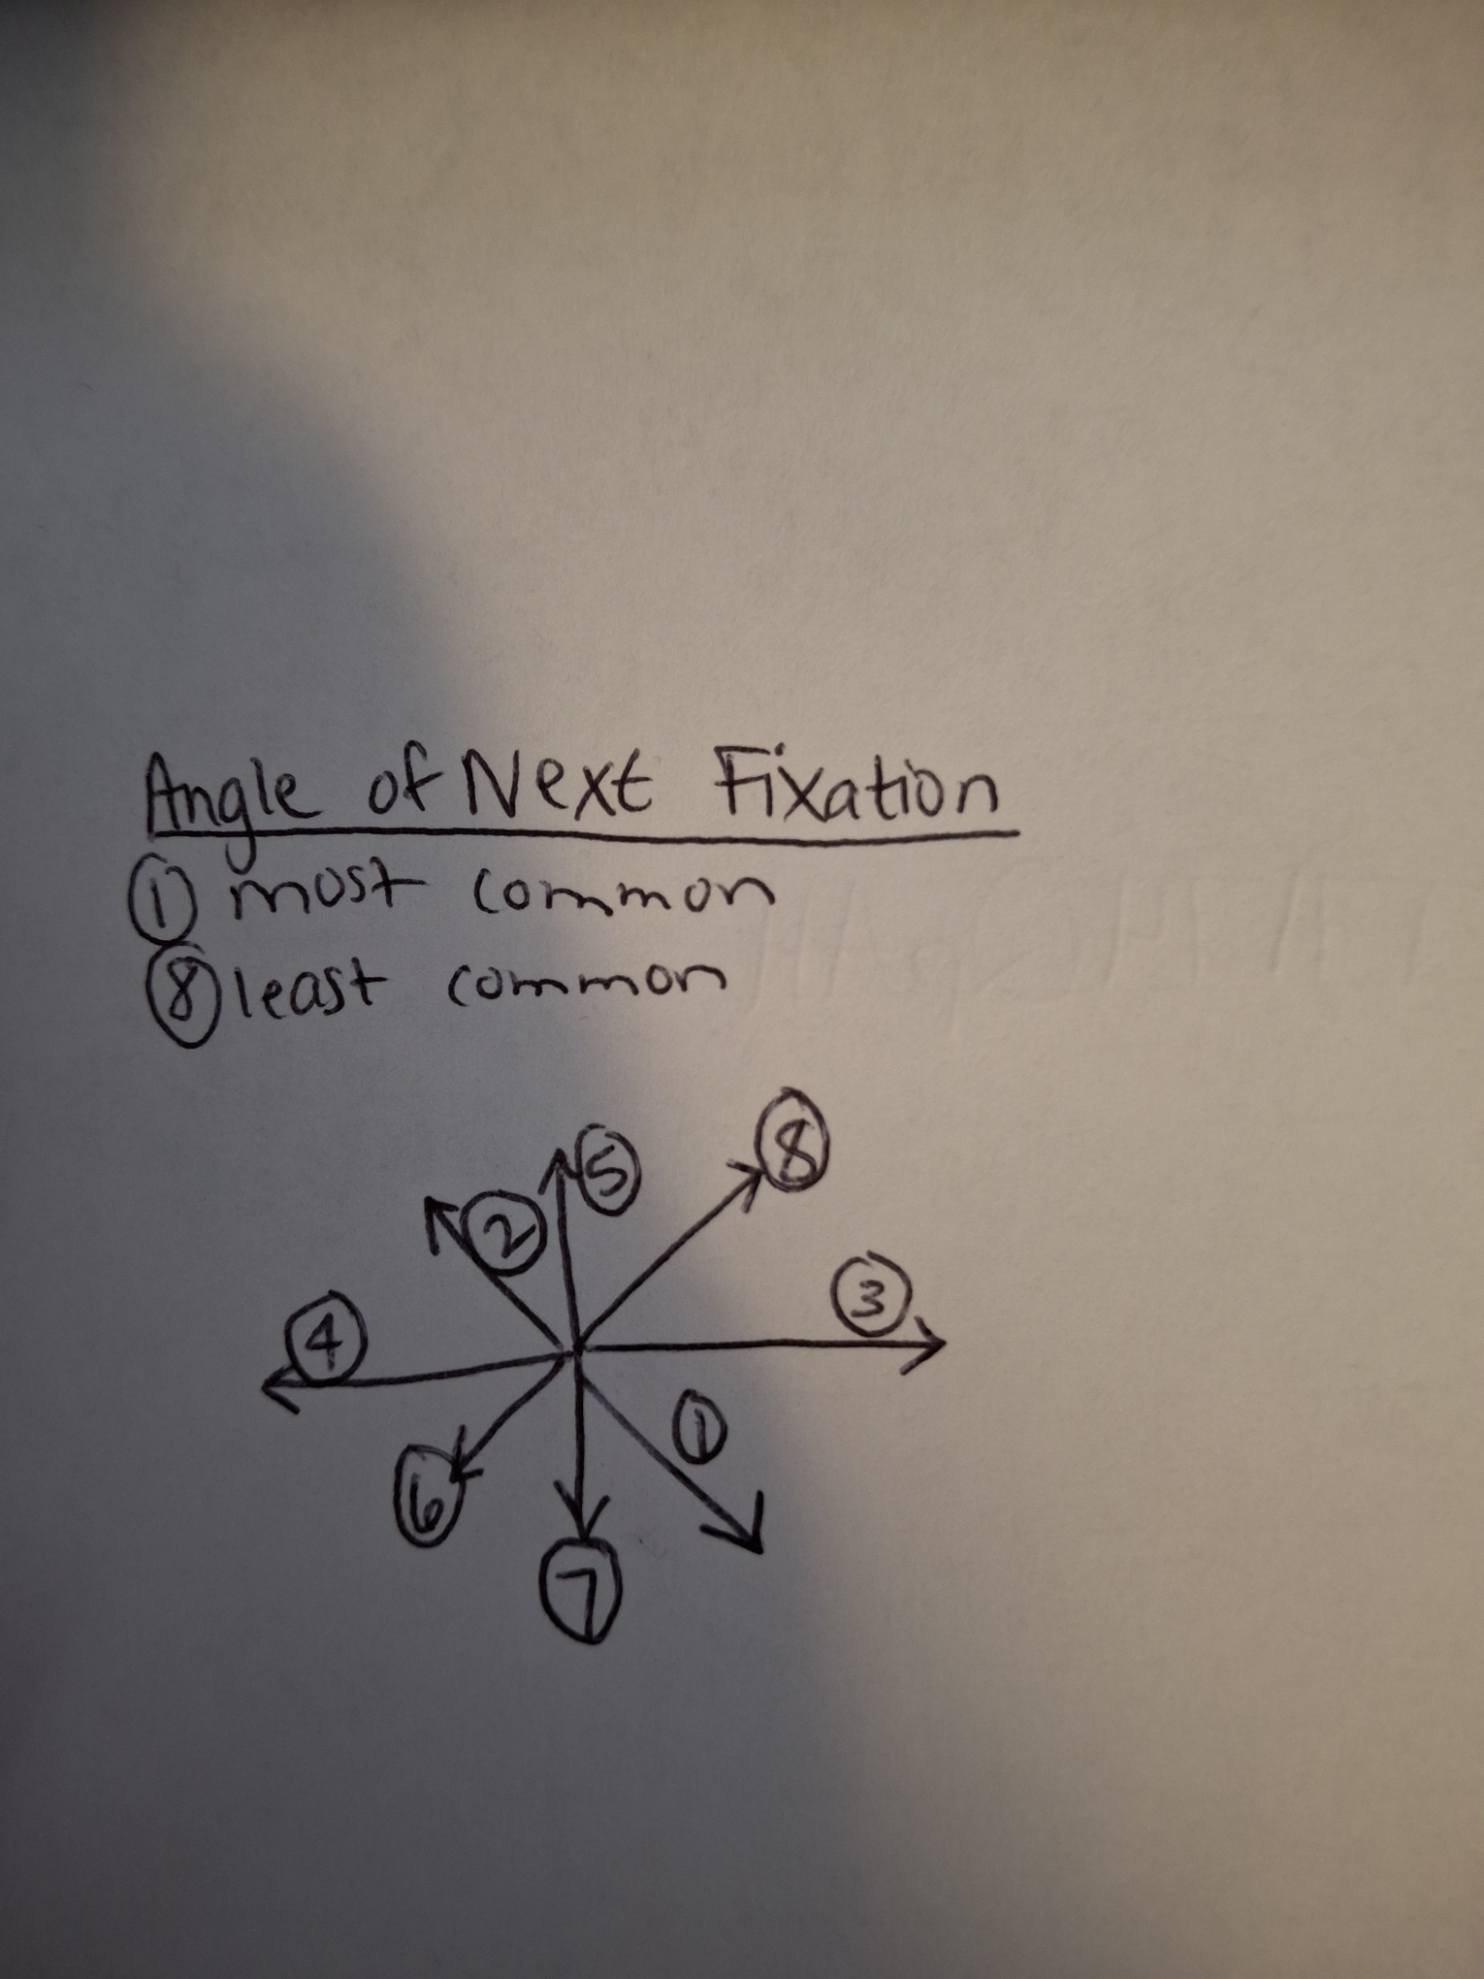 Angle of Next Fixation
① most common
⑧ least common
⑧
⑤
②
③
④
①
⑥
⑦